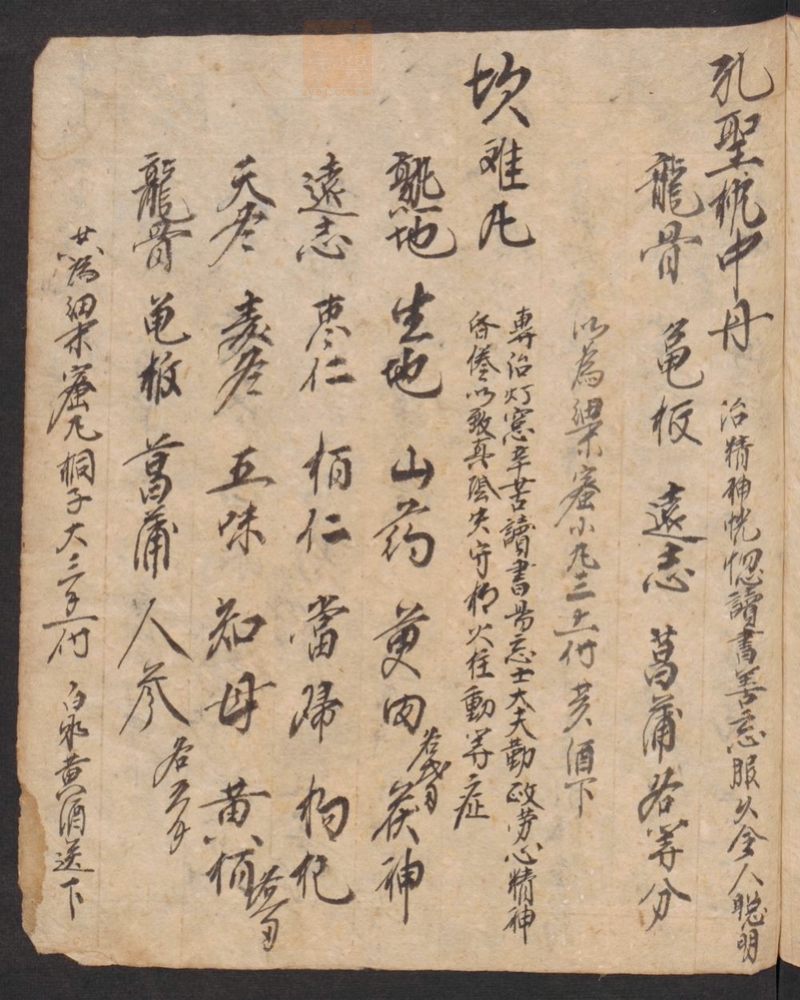 孔聖枕中丹 治精神恍惚讀書善忘服久令人聰明
龍骨 龜板 遠志 菖蒲各等分
以為細末蜜小丸三上付黃酒下
坎难丸 專治灯窓辛苦讀書易忘士大夫勤政劳心精神
昏倦以致真阴失守相火枉動等症
熟地 生地 山药 萸肉 茯神
遠志 枣仁 柏仁 當歸 枸杞
天冬 麦冬 五味 知母 黄柏
龍骨 龟板 菖蒲 人参 各五
共為細末蜜丸桐子大 白水黄酒送下